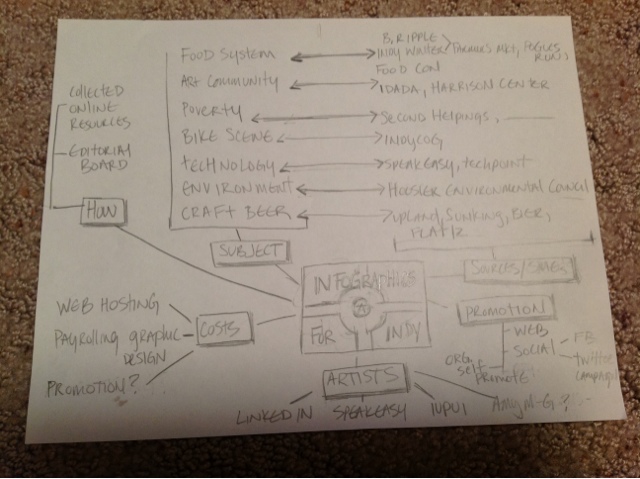 B. RIPPLE
FOOD SYSTEM INDY WINTER FARMERS MKT, POGUES RUN,
FOOD CON
ART COMMUNITY IDADA, HARRISON CENTER
COLLECTED
ONLINE
RESOURCES
POVERTY SECOND HELPINGS,
BIKE SCENE INDYCOG
EDITORIAL
BOARD
TECHNOLOGY SPEAKEASY, TECHPOINT
ENVIRONMENT HOOSIER ENVIRONMENTAL COUNCIL
HOW
CRAFT BEER UPLAND, SUNKING, BIER,
FLAT12
SUBJECT
SOURCES/
INFOGRAPHICS
FOR INDY
WEB HOSTING
COSTS
PAYROLLING GRAPHIC
DESIGN
PROMOTION?
PROMOTION
WEB
SOCIAL
FB
TWITTER
CAMPAIGN
ORG.
SELF
PROMOTE
ARTISTS
LINKED IN SPEAKEASY IUPUI AMY M-G?